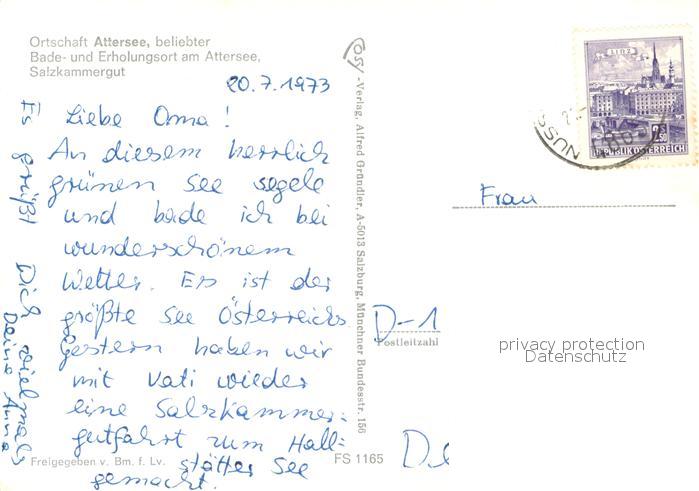 Ortschaft Attersee, beliebter
Bade- und Erholungsort am Attersee,
Salzkammergut
20.7.1973
Liebe Oma!
An diesem herrlich
grünen See segele
und bade ich bei
wunderschönem
Wetter. Er ist der
größte See Österreichs.
Gestern haben wir
mit Vati wieder
eine Salzkammer-
gutfahrt zum Hall-
stätter See
gemacht.
Es grüßt Dich vielmals
Deine Anna
Freigegeben v. Bm. f. Lv.
FS 1165
Cosy-Verlag, Alfred Gründler, A-5013 Salzburg, Münchner Bundesstr. 156
LINZ
2.50
REPUBLIK ÖSTERREICH
NUSS
Frau
D-1
Postleitzahl
privacy protection
Datenschutz